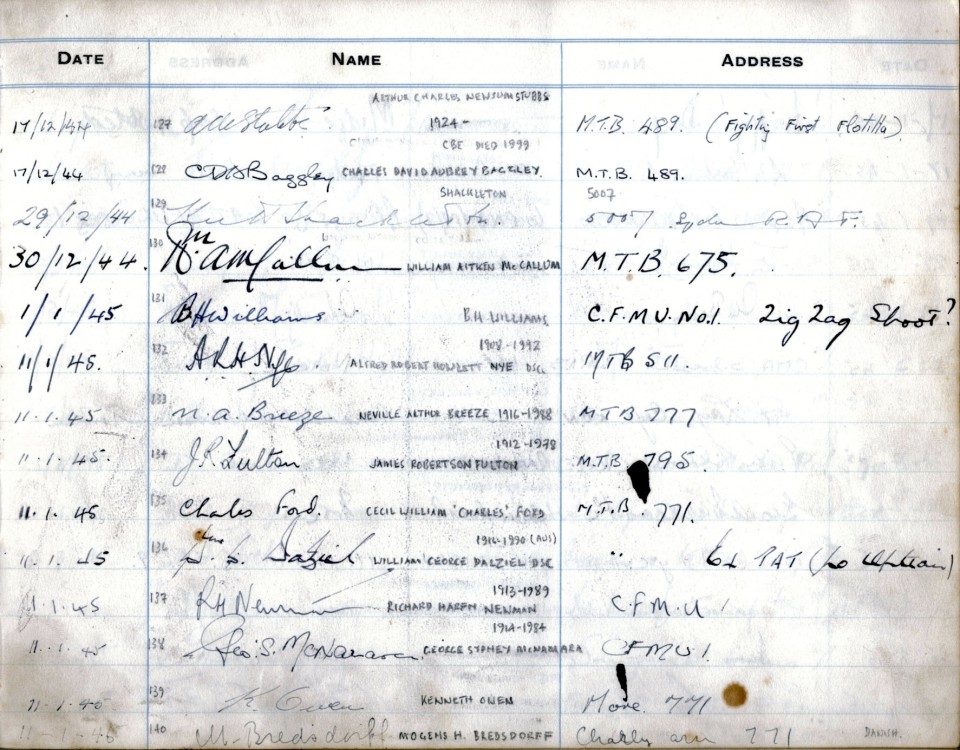 DATE NAME ADDRESS
ARTHUR CHARLES NEWSUM STUBBS
17/12/44 127 1924- M.T.B. 489. (Fighting First Flotilla)
CBE DIED 1999
17/12/44 128 CDA Baggley CHARLES DAVID AUBREY BAGGLEY M.T.B. 489.
SHACKLETON 5007
29/12/44 129 5007 R A F.
30/12/44. 130 Wm A McCallum WILLIAM AITKEN McCALLUM M.T.B. 675.
1/1/45 131 BHWilliams B.H WILLIAMS C.F.M.U. No.1. Zig Zag Shoot?
1908-1992
11/1/45. 132 ARH Nye ALFRED ROBERT HOWLETT NYE DSC MTB 511.
11.1.45 133 N. A. Breeze NEVILLE ARTHUR BREEZE 1916-1988 MTB 777
1912-1978
11.1.45. 134 J.R. Fulton JAMES ROBERTSON FULTON M.T.B. 795
11.1.45 135 Charles Ford. CECIL WILLIAM 'CHARLES' FORD M.T.B 771.
(AUS)
11.1.45 136 Dalziel WILLIAM GEORGE DALZIEL DSC "
1913-1989
11.1.45 137 RH Newman RICHARD HARPN NEWMAN C.F.M.U 1
1914-1984
11.1.45 138 Geo. S. McNamara. GEORGE SYDNEY McNAMARA CFMU 1.
11.1.45 139 K. Owen KENNETH OWEN More 771
11-1-45 140 M. Bredsdorff MOGENS H. BREDSDORFF 771 DANISH.